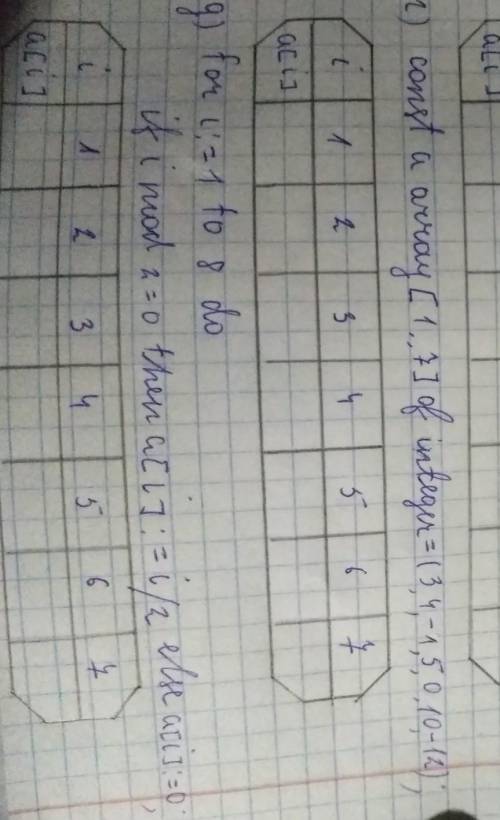 a[i]
г) const a array [1..7] of integer = (3,4,-1,5,0,10,-12);
i 1 2 3 4 5 6 7
a[i]
g) for i:=1 to 8 do
if i mod 2=0 then a[i]:=i/2 else a[i]:=0;
i 1 2 3 4 5 6 7
a[i]